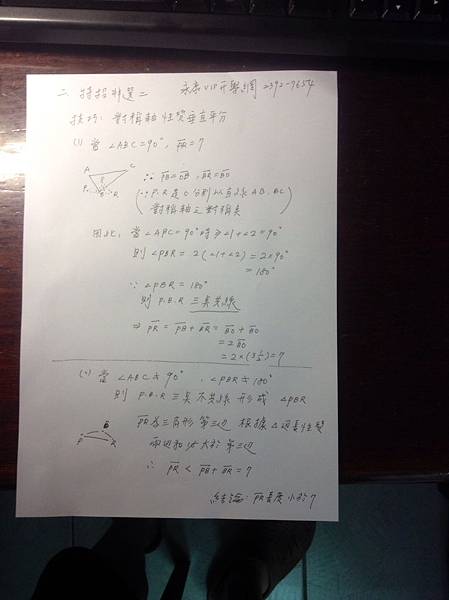 二 特招精選二 永康VIP升學網 2392-7654
技巧: 對稱軸性質垂直平分
(1) 當 ∠ABC=90°, PR=7
A C
P B R
∴ PB=OB, BR=BO
(∵ P.R是O分別以直線AB.BC
對稱軸之對稱点)
因此: 當∠APC=90°時⇒∠1+∠2=90°
則∠PBR= 2(∠1+∠2)=2×90°
=180°
∵ ∠PBR=180°
則 P.B.R 三点共線
⇒ PR = PB+BR = BO+BO
=2BO
=2×(3½)=7
(2) 當 ∠ABC≠90°, ∠PBR≠180°
則 P.B.R 三点不共線 形成 ∠PBR
B
P R
PR為三角形第三边 根據△边長性質
兩边和必大於第三边
∴ PR < PB+BR=7
結論: PR長度小於7